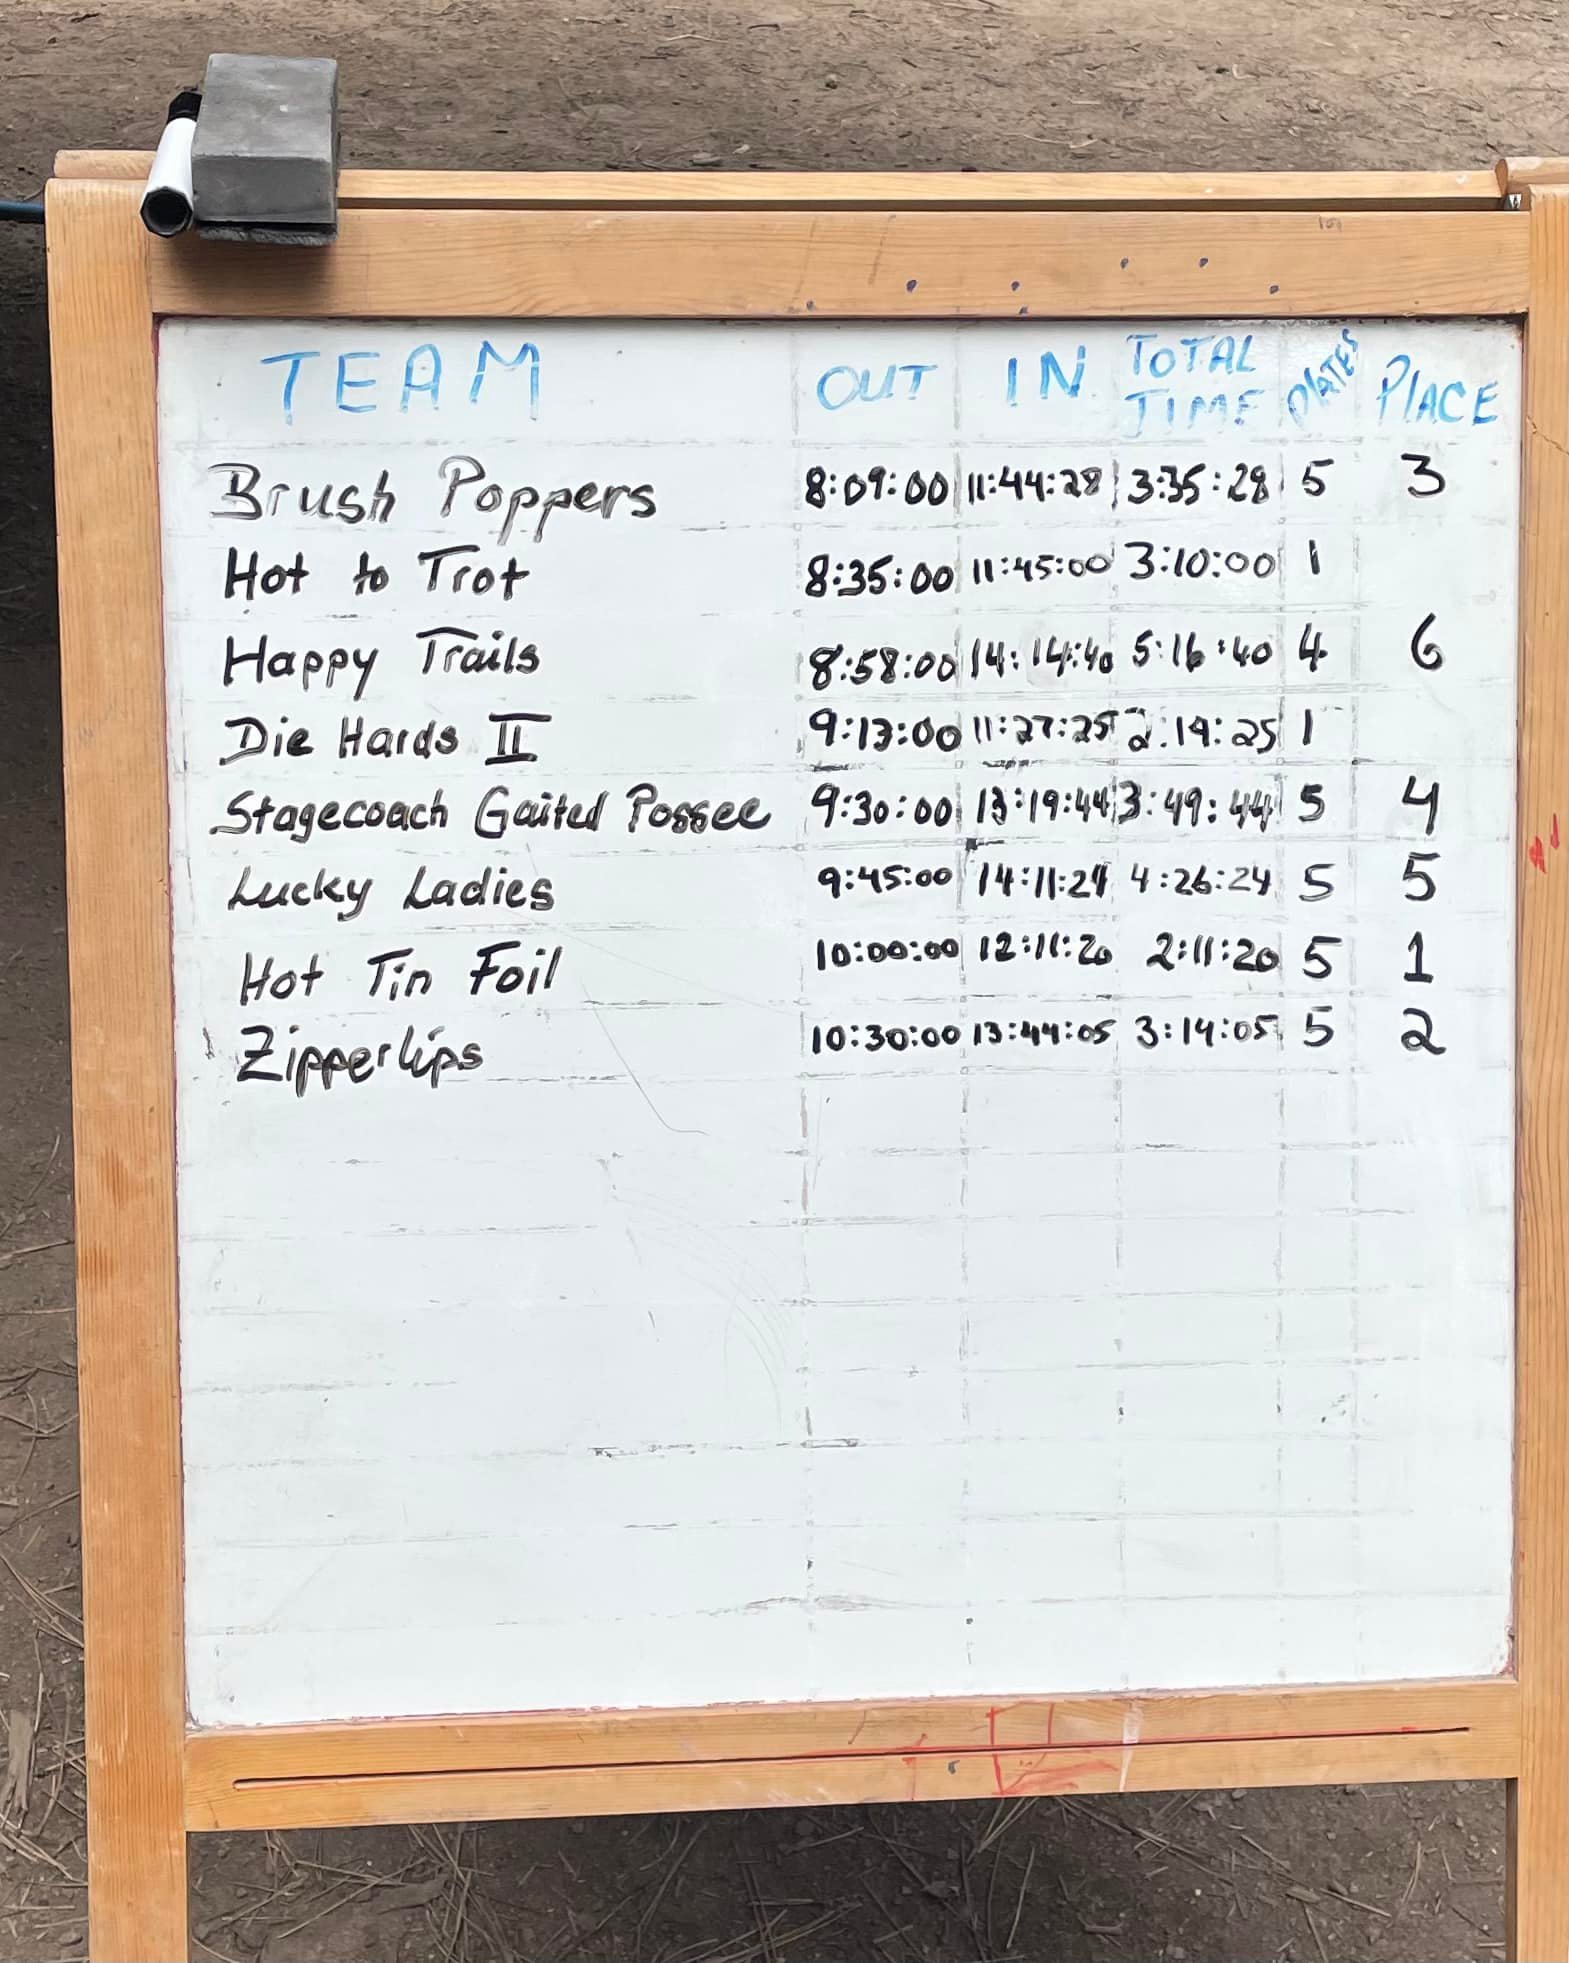 TEAM OUT IN TOTAL TIME PLATES PLACE
Brush Poppers 8:09:00 11:44:28 3:35:28 5 3
Hot to Trot 8:35:00 11:45:00 3:10:00 1
Happy Trails 8:58:00 14:14:40 5:16:40 4 6
Die Hards II 9:13:00 11:27:25 2:14:25 1
Stagecoach Gaited Possee 9:30:00 13:19:44 3:49:44 5 4
Lucky Ladies 9:45:00 14:11:24 4:26:24 5 5
Hot Tin Foil 10:00:00 12:11:20 2:11:20 5 1
Zipperlips 10:30:00 13:44:05 3:14:05 5 2